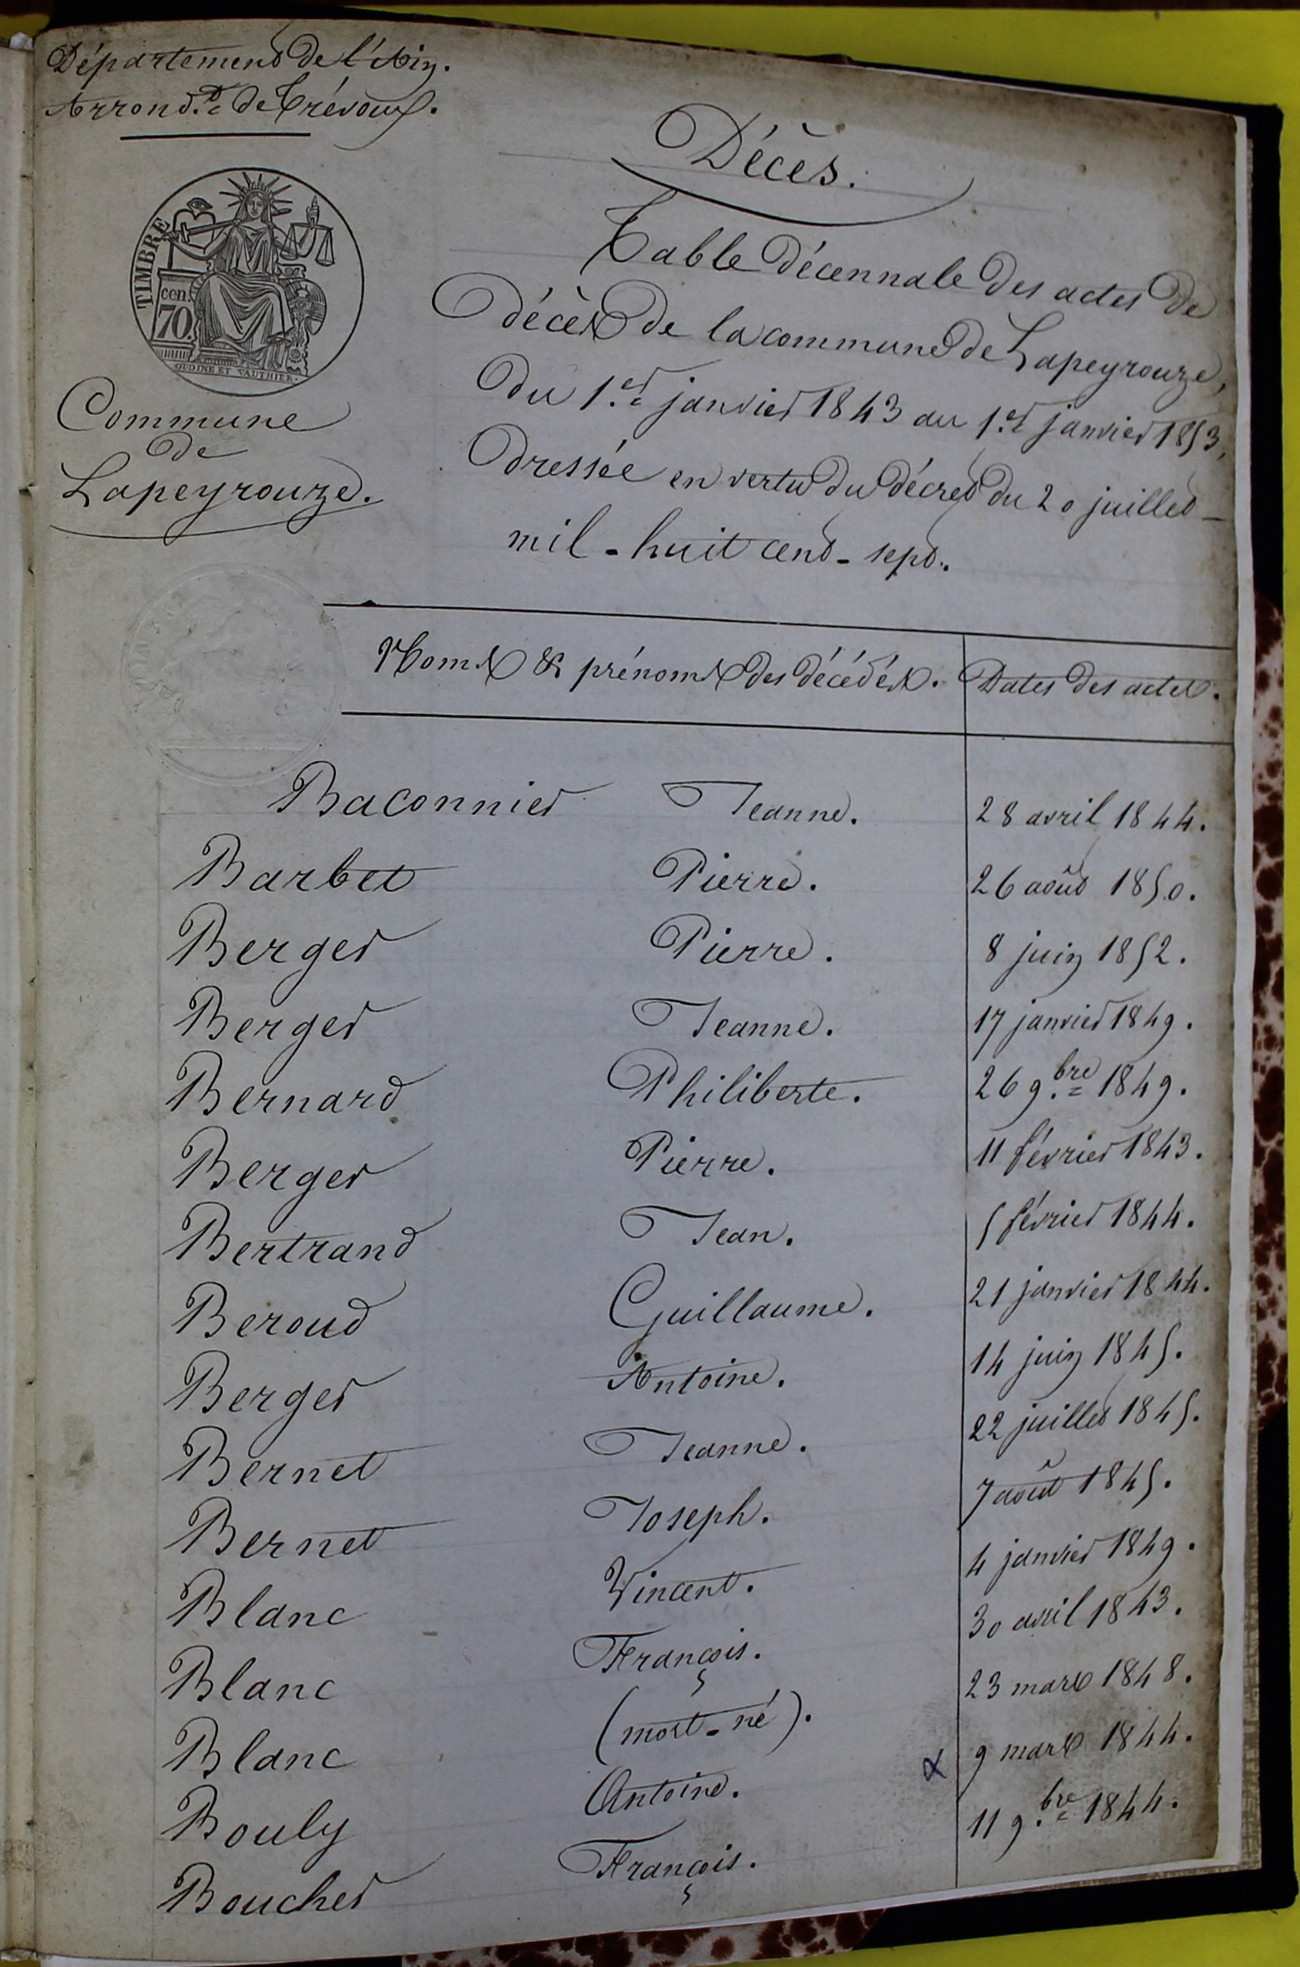 Département de l'Ain.
Arrond.t de Trévoux.
TIMBRE
cen.
70.
OUDINÉ ET VAUTHIER.
Commune
de
Lapeyrouze.
Décès.
Table décennale des actes de
décès de la commune de Lapeyrouze,
du 1.er janvier 1843 au 1.er janvier 1853,
dressée en vertu du décret du 20 juillet
mil-huit cent-sept.
Noms & prénoms des décédés. Dates des actes.
Baconnier Jeanne. 28 avril 1844.
Barbet Pierre. 26 août 1850.
Berger Pierre. 8 juin 1852.
Berger Jeanne. 17 janvier 1849.
Bernard Philiberte. 26 9.bre 1849.
Berger Pierre. 11 février 1843.
Bertrand Jean. 5 février 1844.
Beroud Guillaume. 21 janvier 1844.
Berger Antoine. 14 juin 1845.
Bernet Jeanne. 22 juillet 1845.
Bernet Joseph. 7 août 1845.
Blanc Vincent. 4 janvier 1849.
Blanc François. 30 avril 1843.
Blanc (mort-né). 23 mars 1848.
Bouly Antoine. 9 mars 1844.
Boucher François. 11 9.bre 1844.